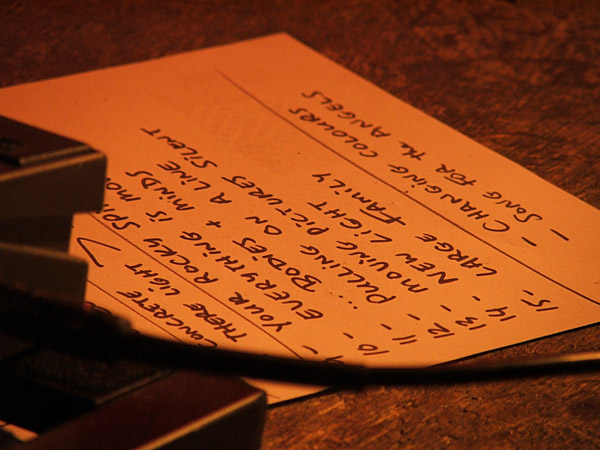 CONCRETE
THERE LIGHT
9- YOUR ROCKY
10 - EVERYTHING IS
11 - ... BODIES + MINDS
12 - PULLING ON A LINE
13 - MOVING PICTURES SILENT
14 - NEW LIGHT
15. LARGE FAMILY
- CHANGING COLOURS
- SONG FOR the ANGELS